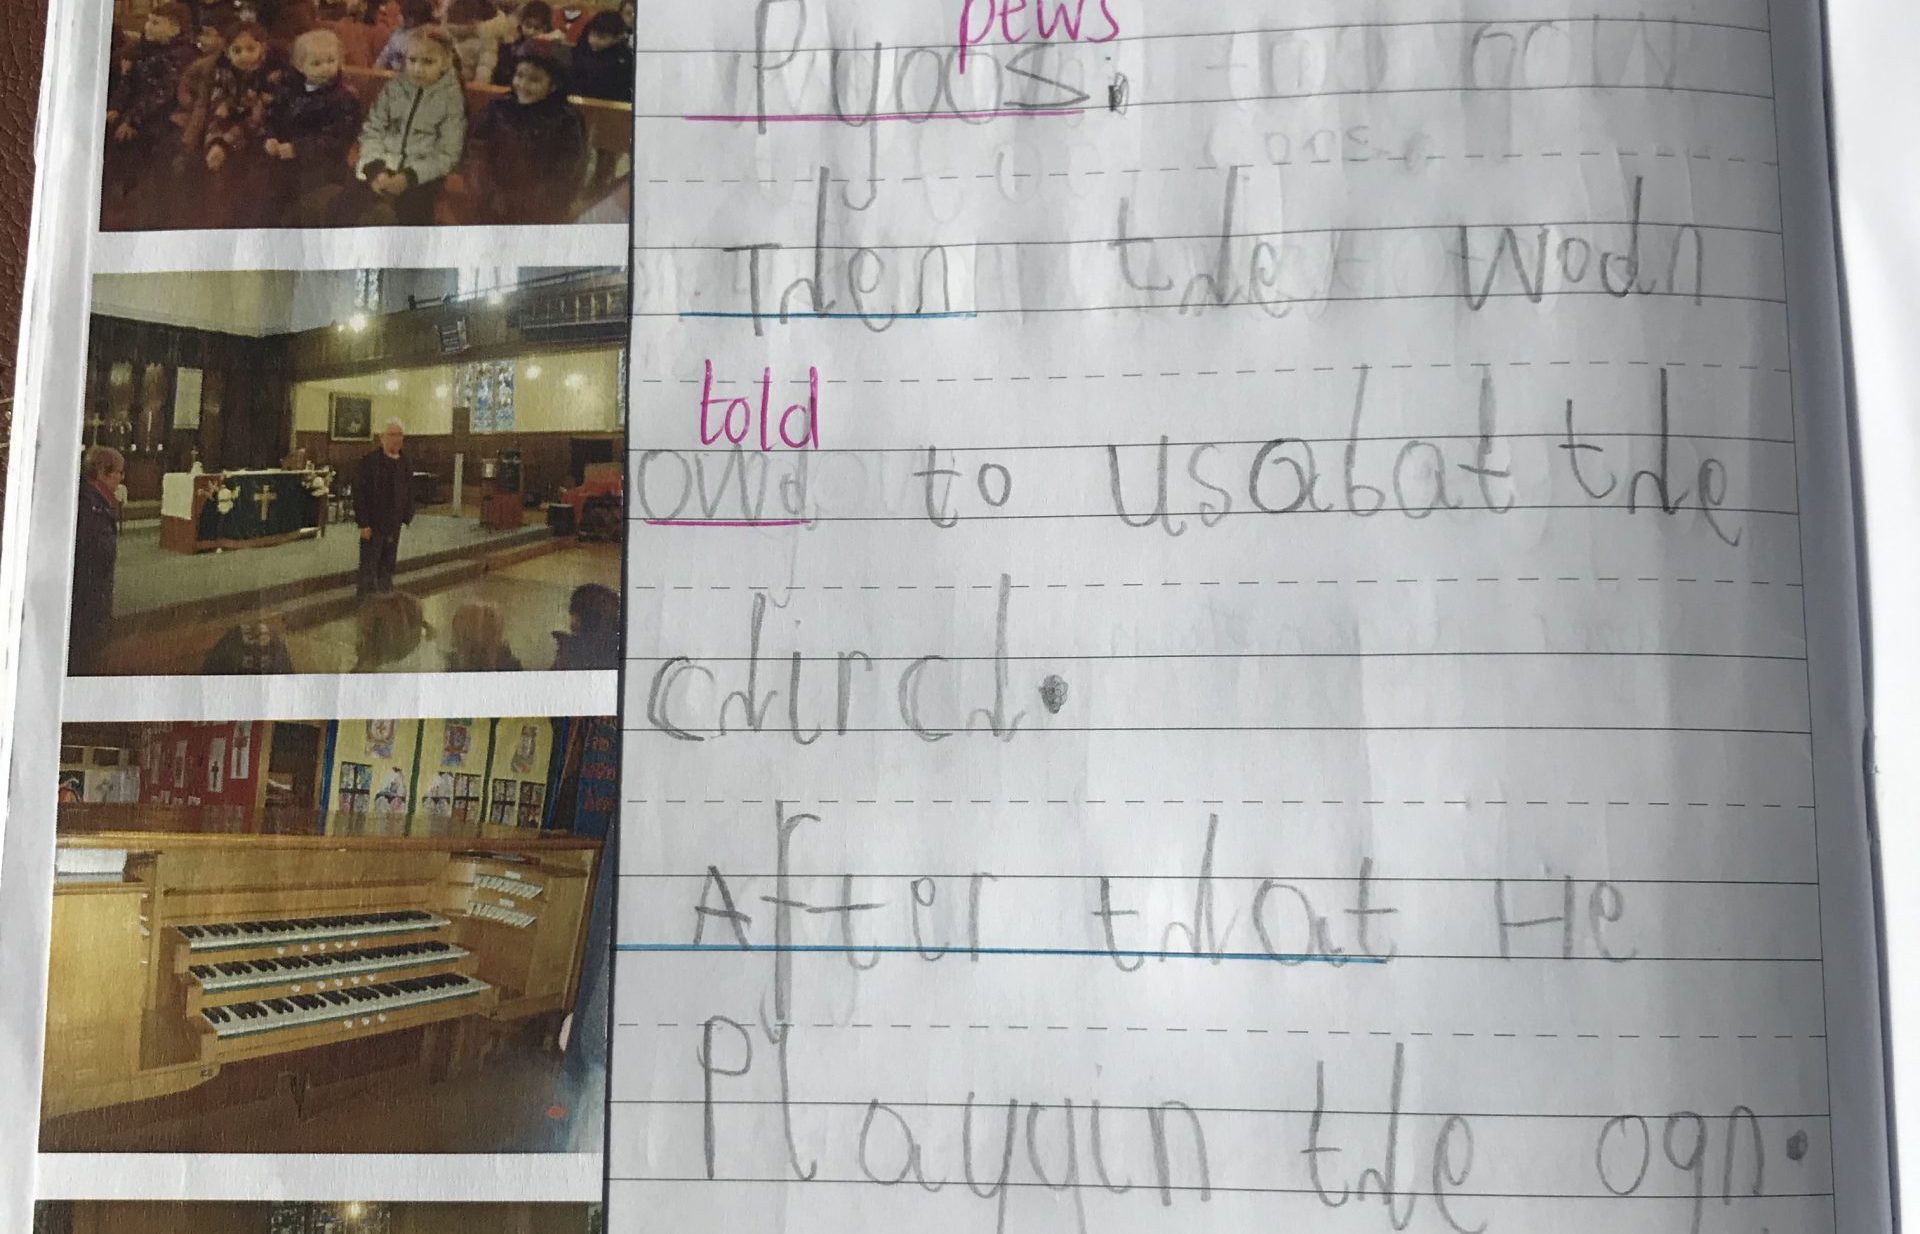 pews
Pyoos.
Tden tde wodn
told
owd to usabat tde
cdircd.
After tdat He
Playyin tde ogn.